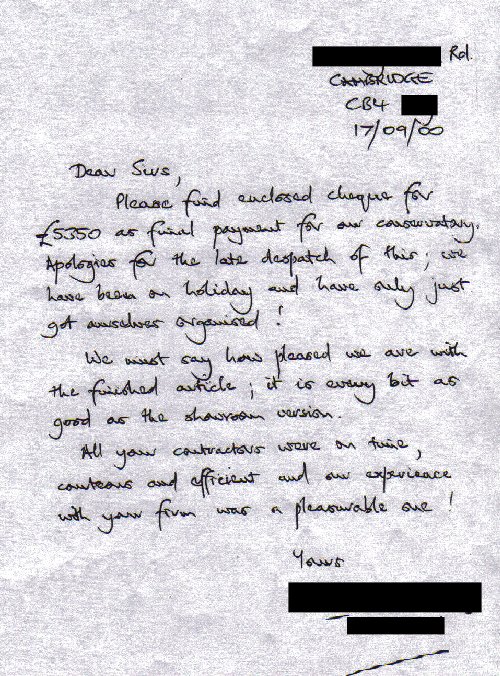 Rd.
CAMBRIDGE
CB4
17/09/00
Dear Sirs,
Please find enclosed cheque for
£5350 as final payment for our conservatory.
Apologies for the late despatch of this; we
have been on holiday and have only just
got ourselves organised!
We must say how pleased we are with
the finished article; it is every bit as
good as the showroom version.
All your contractors were on time,
courteous and efficient and our experience
with your firm was a pleasurable one!
Yours